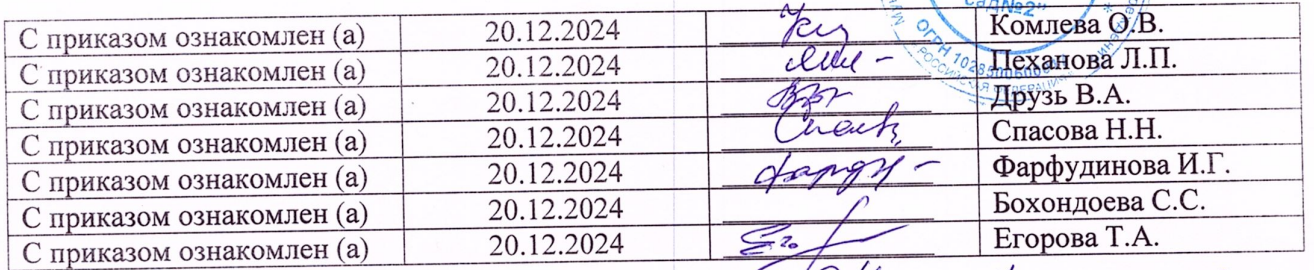 сад№2"
ОГРН 102850060
РОССИЙСКАЯ ФЕДЕРАЦИЯ
С приказом ознакомлен (а) 20.12.2024 Комлева О.В.
С приказом ознакомлен (а) 20.12.2024 Пеханова Л.П.
С приказом ознакомлен (а) 20.12.2024 Друзь В.А.
С приказом ознакомлен (а) 20.12.2024 Спасова Н.Н.
С приказом ознакомлен (а) 20.12.2024 Фарфудинова И.Г.
С приказом ознакомлен (а) 20.12.2024 Бохондоева С.С.
С приказом ознакомлен (а) 20.12.2024 Егорова Т.А.